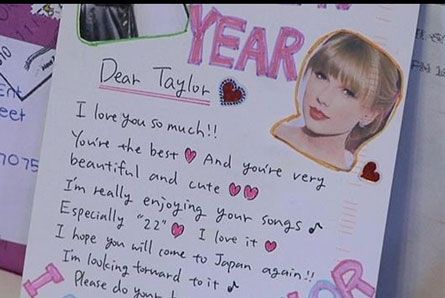 YEAR
Dear Taylor
I love you so much!!
You're the best ♥ And you're very
beautiful and cute ♥♥
I'm really enjoying your songs ♪
Especially "22" ♥ I love it ♥
I hope you will come to Japan again!!
I'm looking forward to it ♪
Please do your